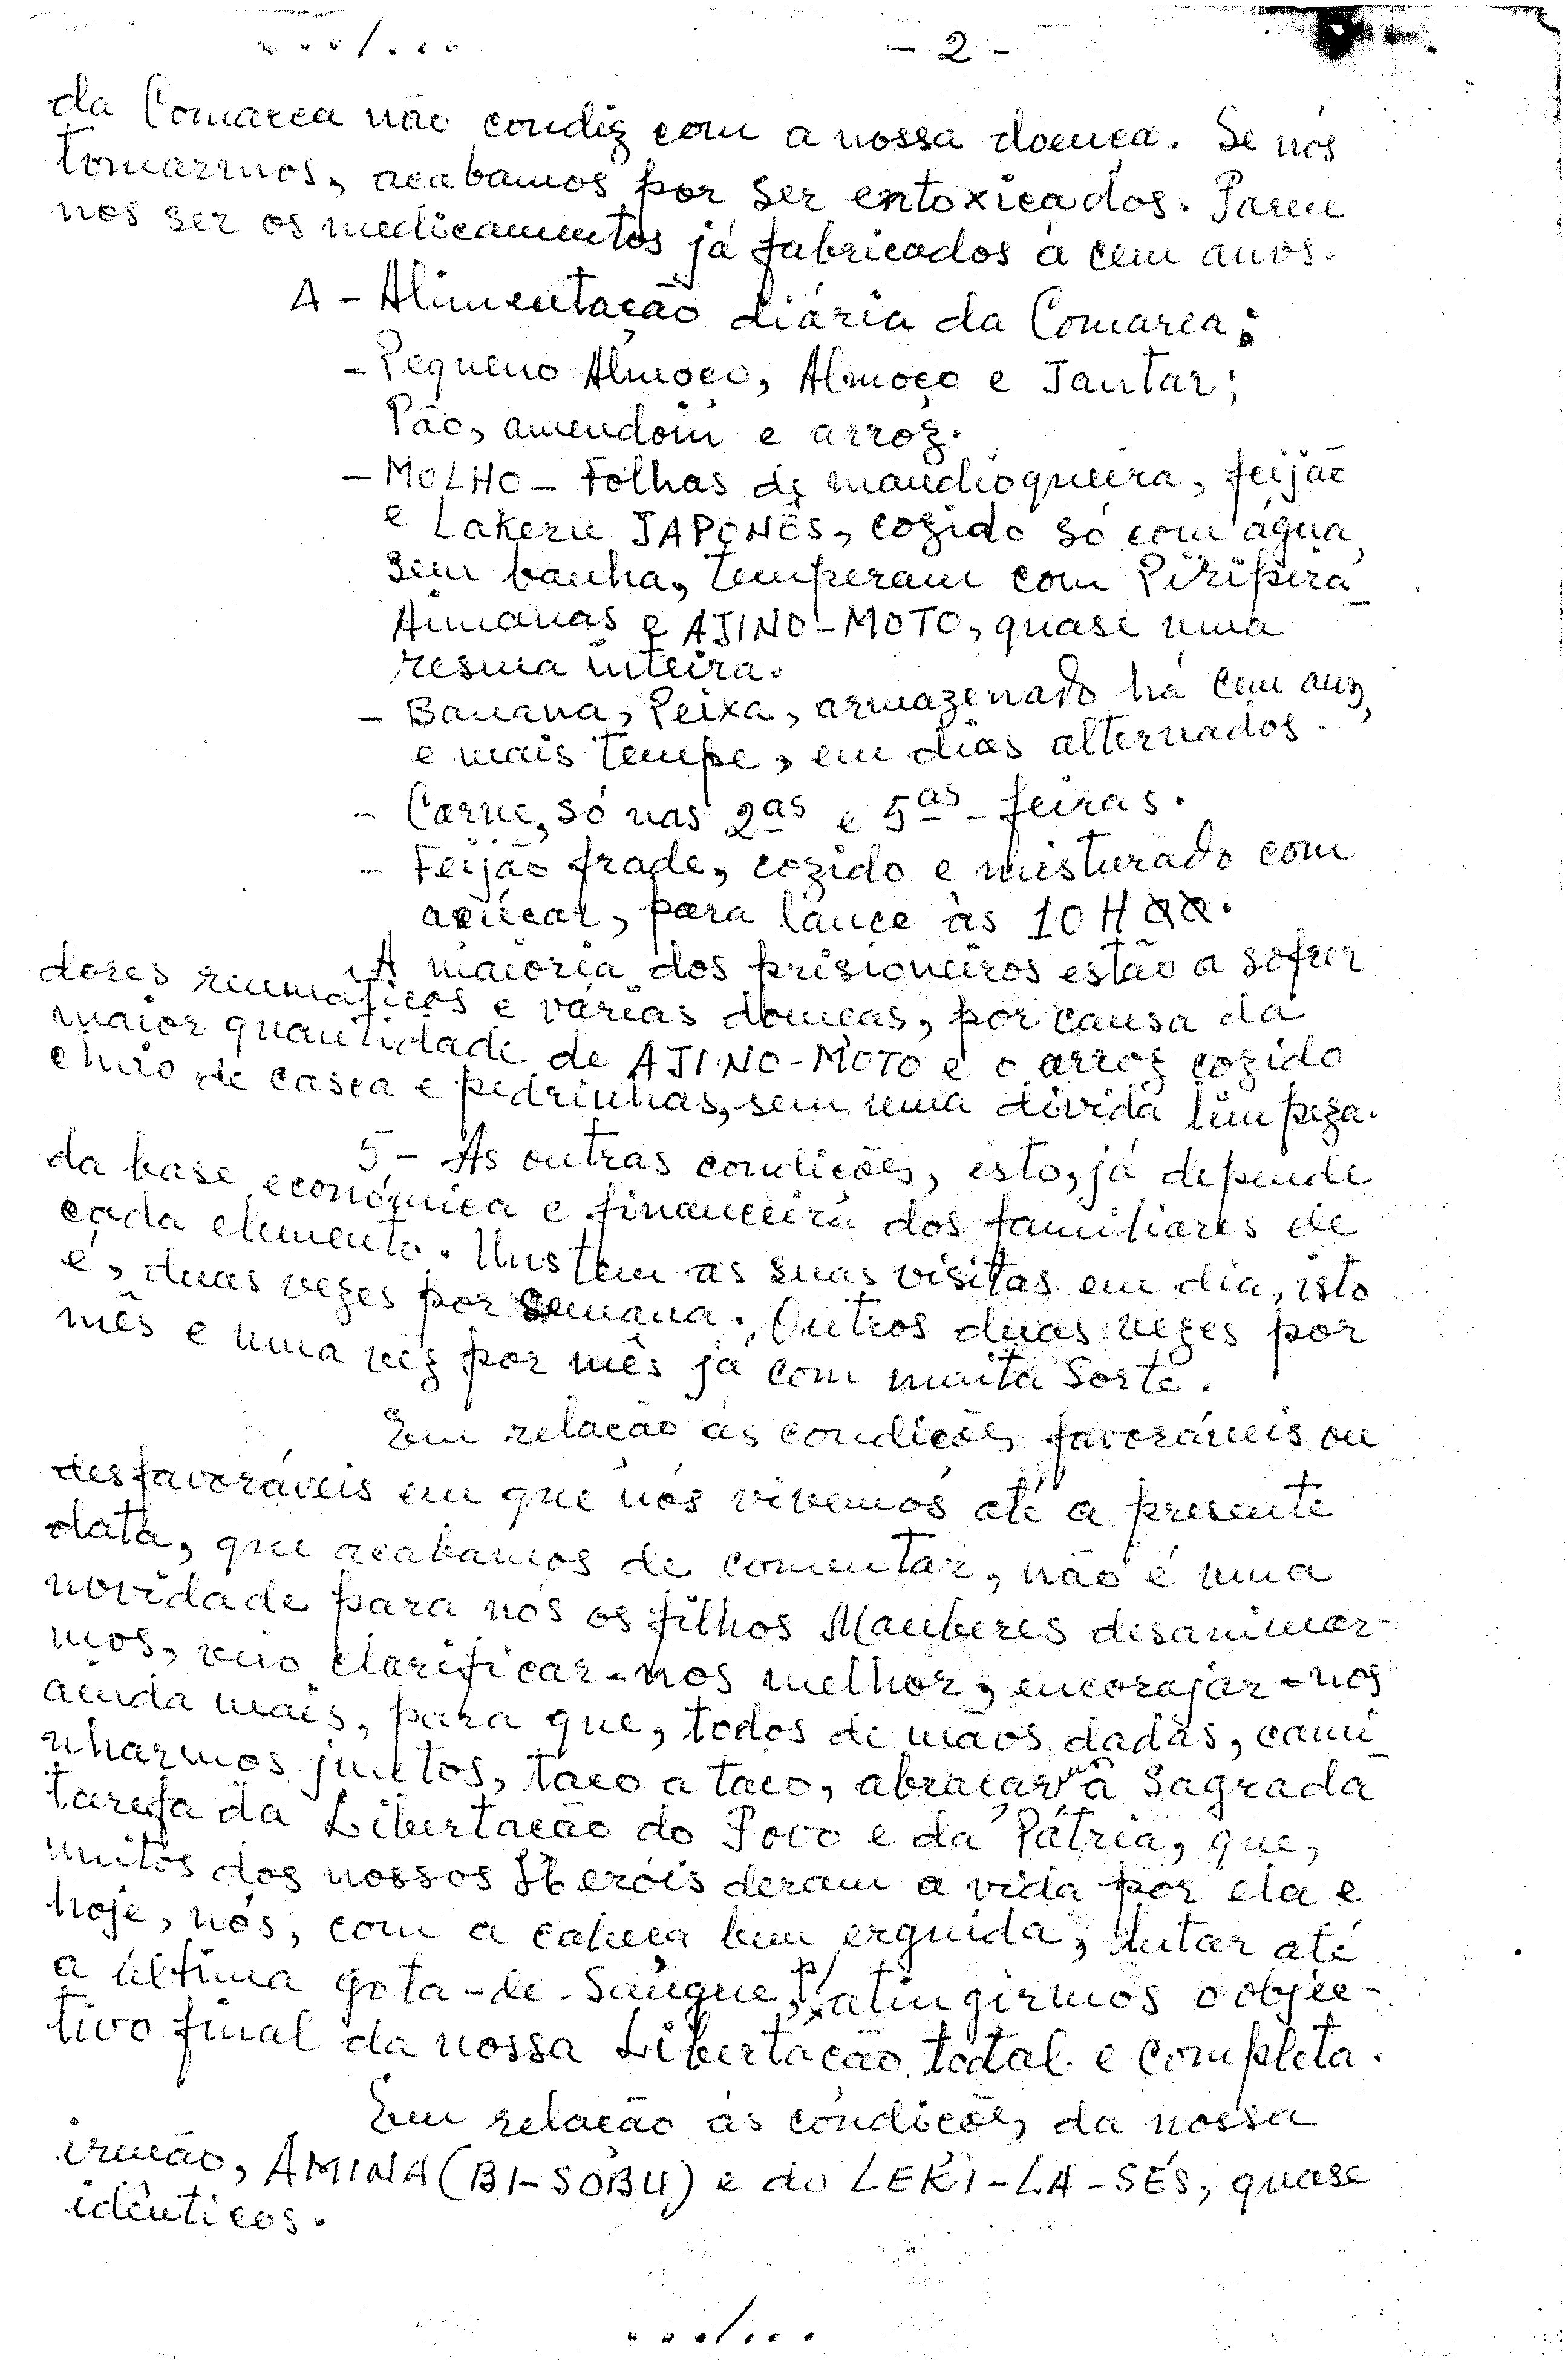 .../...
- 2 -
da Comarca não condiz com a nossa doença. Se nós
tomarmos, acabamos por ser entoxicados. Parece
nos ser os medicamentos já fabricados à cem anos.
4 - Alimentação diária da Comarca:
- Pequeno Almoço, Almoço e Jantar;
Pão, amendoim e arroz.
- MOLHO - Folhas de mandioqueira, feijão
e Lakeru JAPONÊS, cozido só com água,
sem banha, temperam com Piripiri
Aimanas e AJINO-MOTO, quase uma
resma inteira.
- Banana, Peixa, armazenado há cem anos,
e mais tempe, em dias alternados.
- Carne, só nas 2as e 5as - feiras.
- Feijão frade, cozido e misturado com
açúcar, para lance às 10 H
A maioria dos prisioneiros estão a sofrer
dores reumáticos e várias doenças, por causa da
maior quantidade de AJINO-MOTO e o arroz cozido
cheio de casca e pedrinhas, sem uma divida limpeza.
5 - As outras condições, isto, já depende
da base económica e financeira dos familiares de
cada elemento. Uns tem as suas visitas em dia, isto
é, duas vezes por semana. Outros duas vezes por
mês e uma vez por mês já com muita sorte.
Em relação às condições favoráveis ou
desfavoráveis em que nós vivemos até a presente
data, que acabamos de comentar, não é uma
novidade para nós os filhos Mauberes desanimar-
mos, veio clarificar-nos melhor, encorajar-nos
ainda mais, para que, todos de mãos dadas, cami
nharmos juntos, taco a taco, abraçar a Sagrada
tarefa da Libertação do Povo e da Pátria, que,
muitos dos nossos Heróis deram a vida por ela e
hoje, nós, com a cabeça bem erguida, lutar até
a última gota-de-Sangue, p/ atingirmos o objec-
tivo final da nossa Libertação total e completa.
Em relação às condições da nossa
irmão, AMINA (BI-SÓBU) e do LEKI-LA-SÉS, quase
idênticos.
.../...